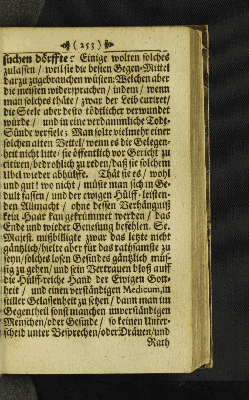 ( 253 )
suchen dörffte: Einige wolten solches
zulassen / weil sie die besten Gegen-Mittel
darzu zugebrauchen wüsten: Welchen aber
die meisten widersprachen / indem / wenn
man solches thäte / zwar der Leib curiret /
die Seele aber desto tödtlicher verwundet
würde / und in eine verdamliche Todt-
Sünde verfiele; Man solte vielmehr einer
solchen alten Vettel / wenn es die Gelegen-
heit nicht litte / sie öffentlich vor Gericht zu
citiren / bedrohlich zu reden / daß sie solchem
Ubel wieder abhülffe. Thät sie es / wohl
und gut! wo nicht / müste man sich in Ge-
dult fassen / und der ewigen Hülff-leisten-
den Allmacht / ohne dessen Verhängniß
kein Haar kan gekrümmet werden / das
Ende und wieder Genesung befehlen. Se.
Majest. mißbilligte zwar das letzte nicht
gäntzlich / hielte aber für das rathsamste zu
seyn / solches losen Gesindes gäntzlich müs-
sig zu gehen / und sein Vertrauen bloß auff
die Hülff-reiche Hand der Ewigen Gott-
heit / und einen verständigen Medicum, in
stiller Gelassenheit zu sehen / dann man im
Gegentheil sonst manchen unverständigen
Menschen / oder Gesinde / so keinen Unter-
scheid unter Besprechen / oder Dräuen / und
Rath